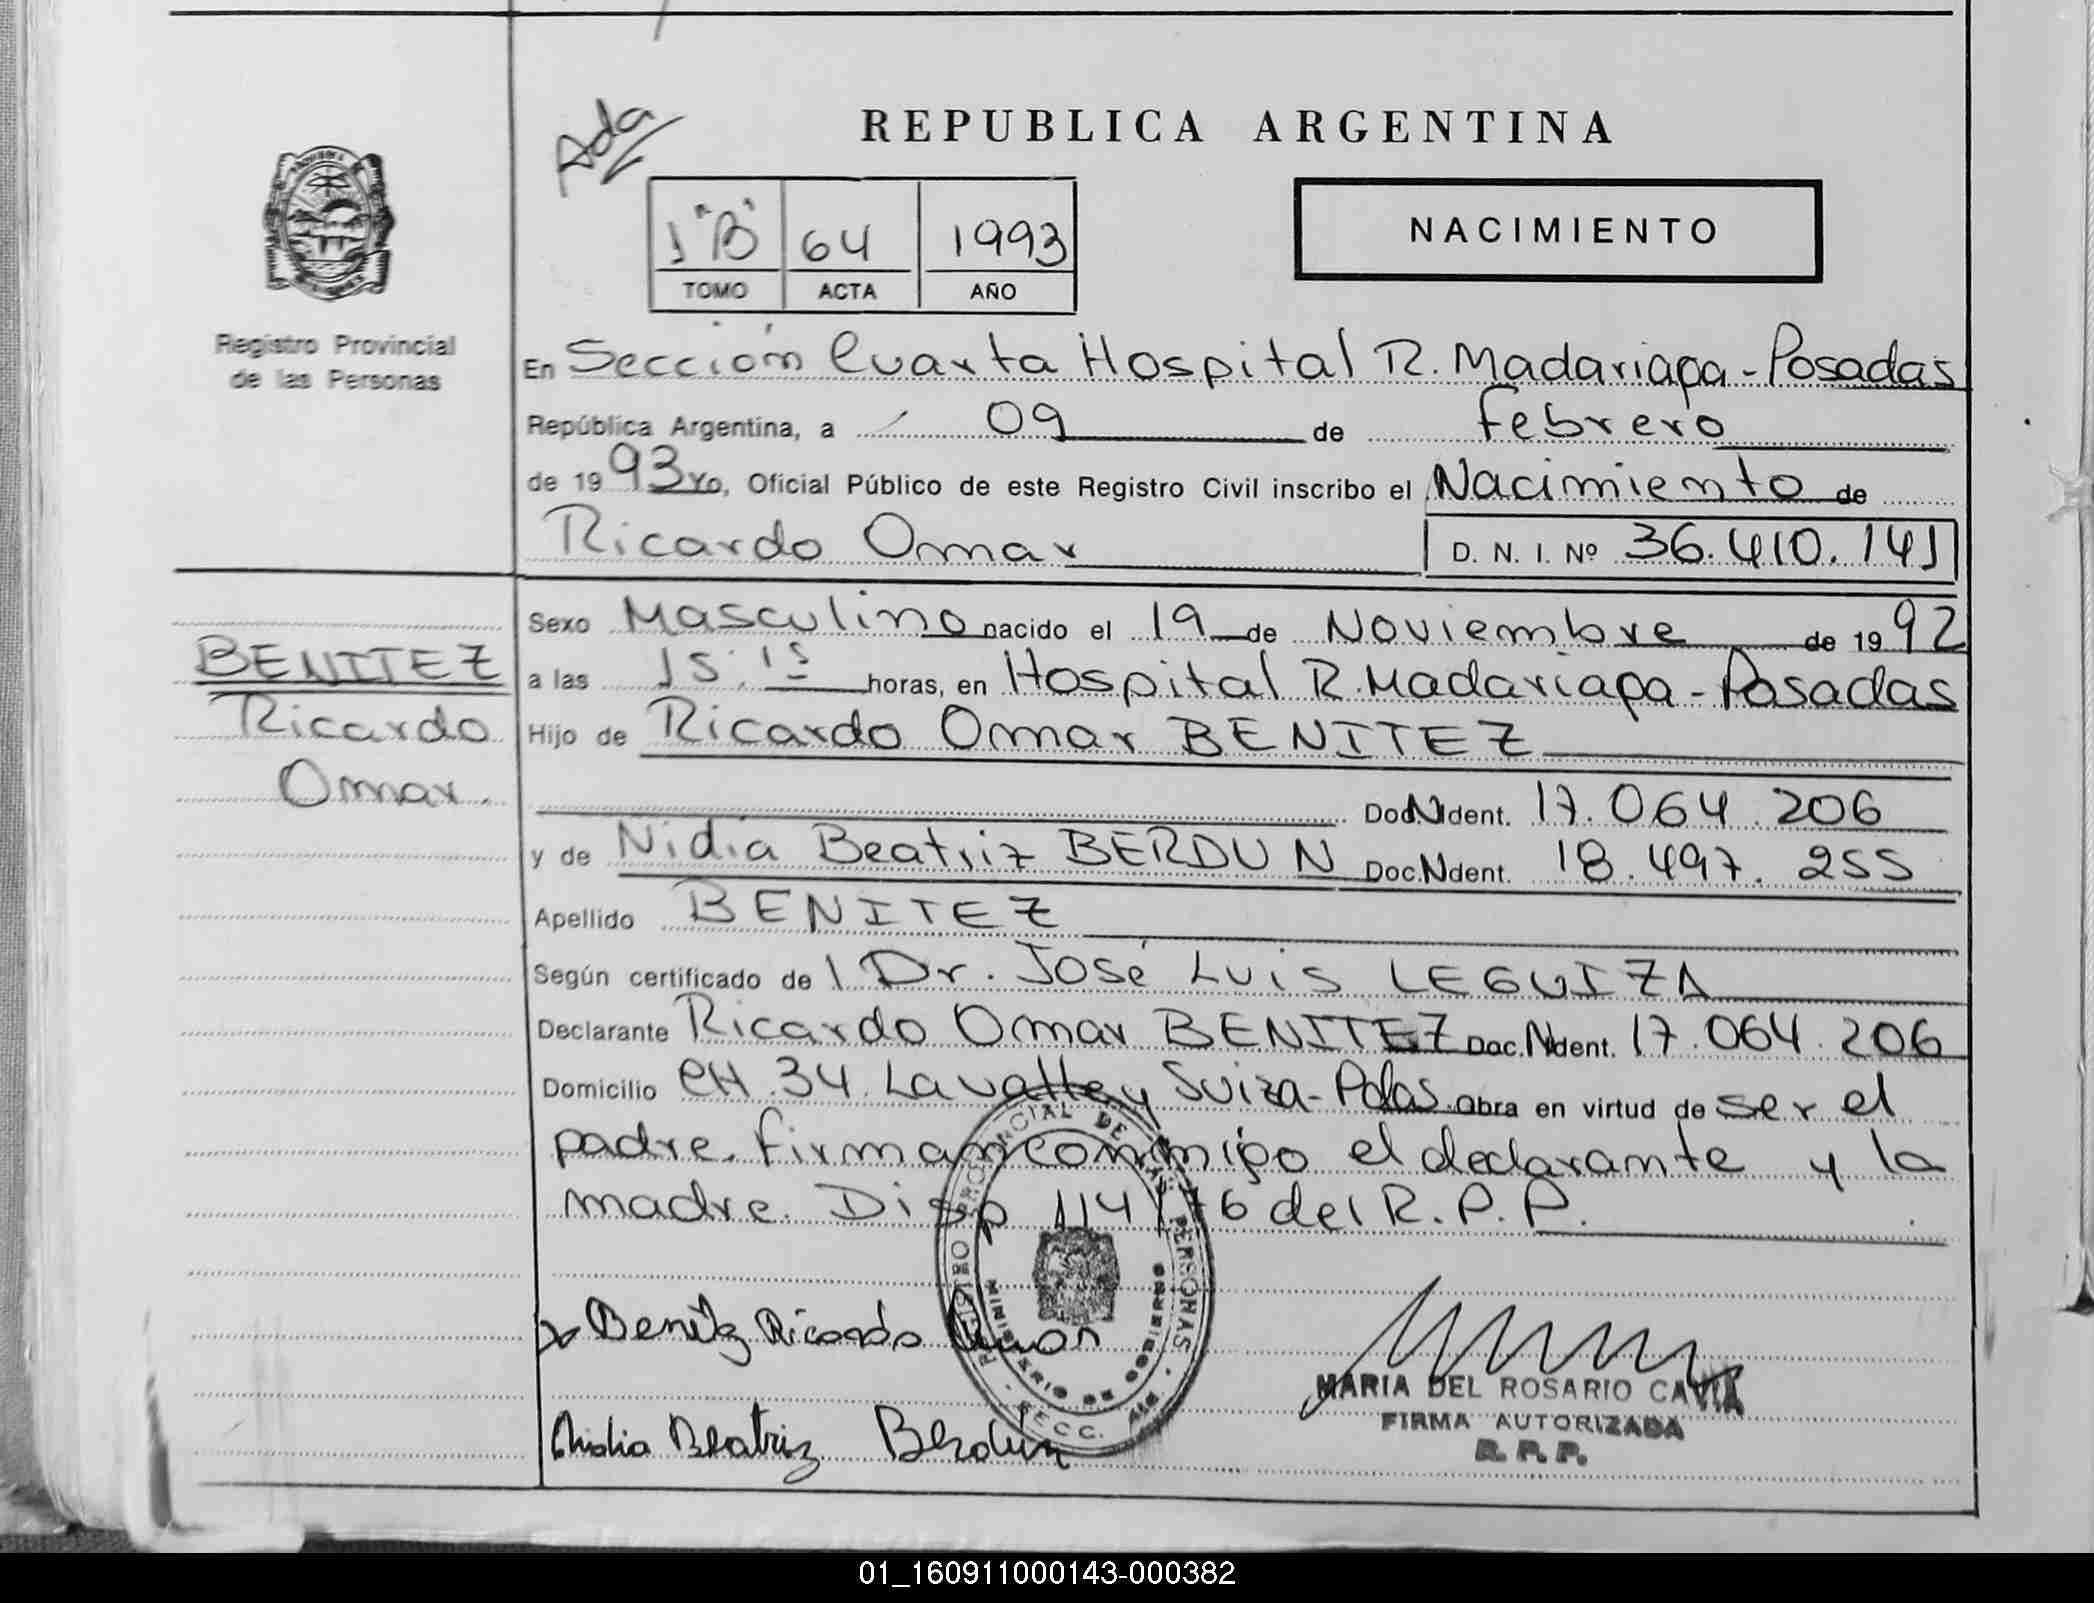 Ada
REPUBLICA ARGENTINA
1 "B" 64 1993
TOMO ACTA AÑO
NACIMIENTO
Registro Provincial
de las Personas
En Sección Cuarta Hospital R. Madariaga - Posadas
República Argentina, a 09 de Febrero
de 19 93 Yo, Oficial Público de este Registro Civil inscribo el Nacimiento de
Ricardo Omar D. N. I. Nº 36.410.141
BENITEZ
Ricardo
Omar.
Sexo Masculino nacido el 19 de Noviembre de 19 92
a las 15:15 horas, en Hospital R. Madariaga - Posadas
Hijo de Ricardo Omar BENITEZ
Doc. Ident. 17.064.206
y de Nidia Beatriz BERDUN Doc. Ident. 18.497.255
Apellido BENITEZ
Según certificado de l Dr. José Luis LEGUIZA
Declarante Ricardo Omar BENITEZ Doc. Ident. 17.064.206
Domicilio CH.34 Lavalle y Suiza - Pdas. Obra en virtud de ser el
padre. Firman conmigo el declarante y la
madre. Disp 114/76 del R.P.P.
REGISTRO PROVINCIAL DE LAS PERSONAS
MINISTERIO DE GOBIERNO
Benitez Ricardo Omar
Nidia Beatriz Berdún
MARIA DEL ROSARIO CAVIA
FIRMA AUTORIZADA
R. P. P.
01_160911000143-000382